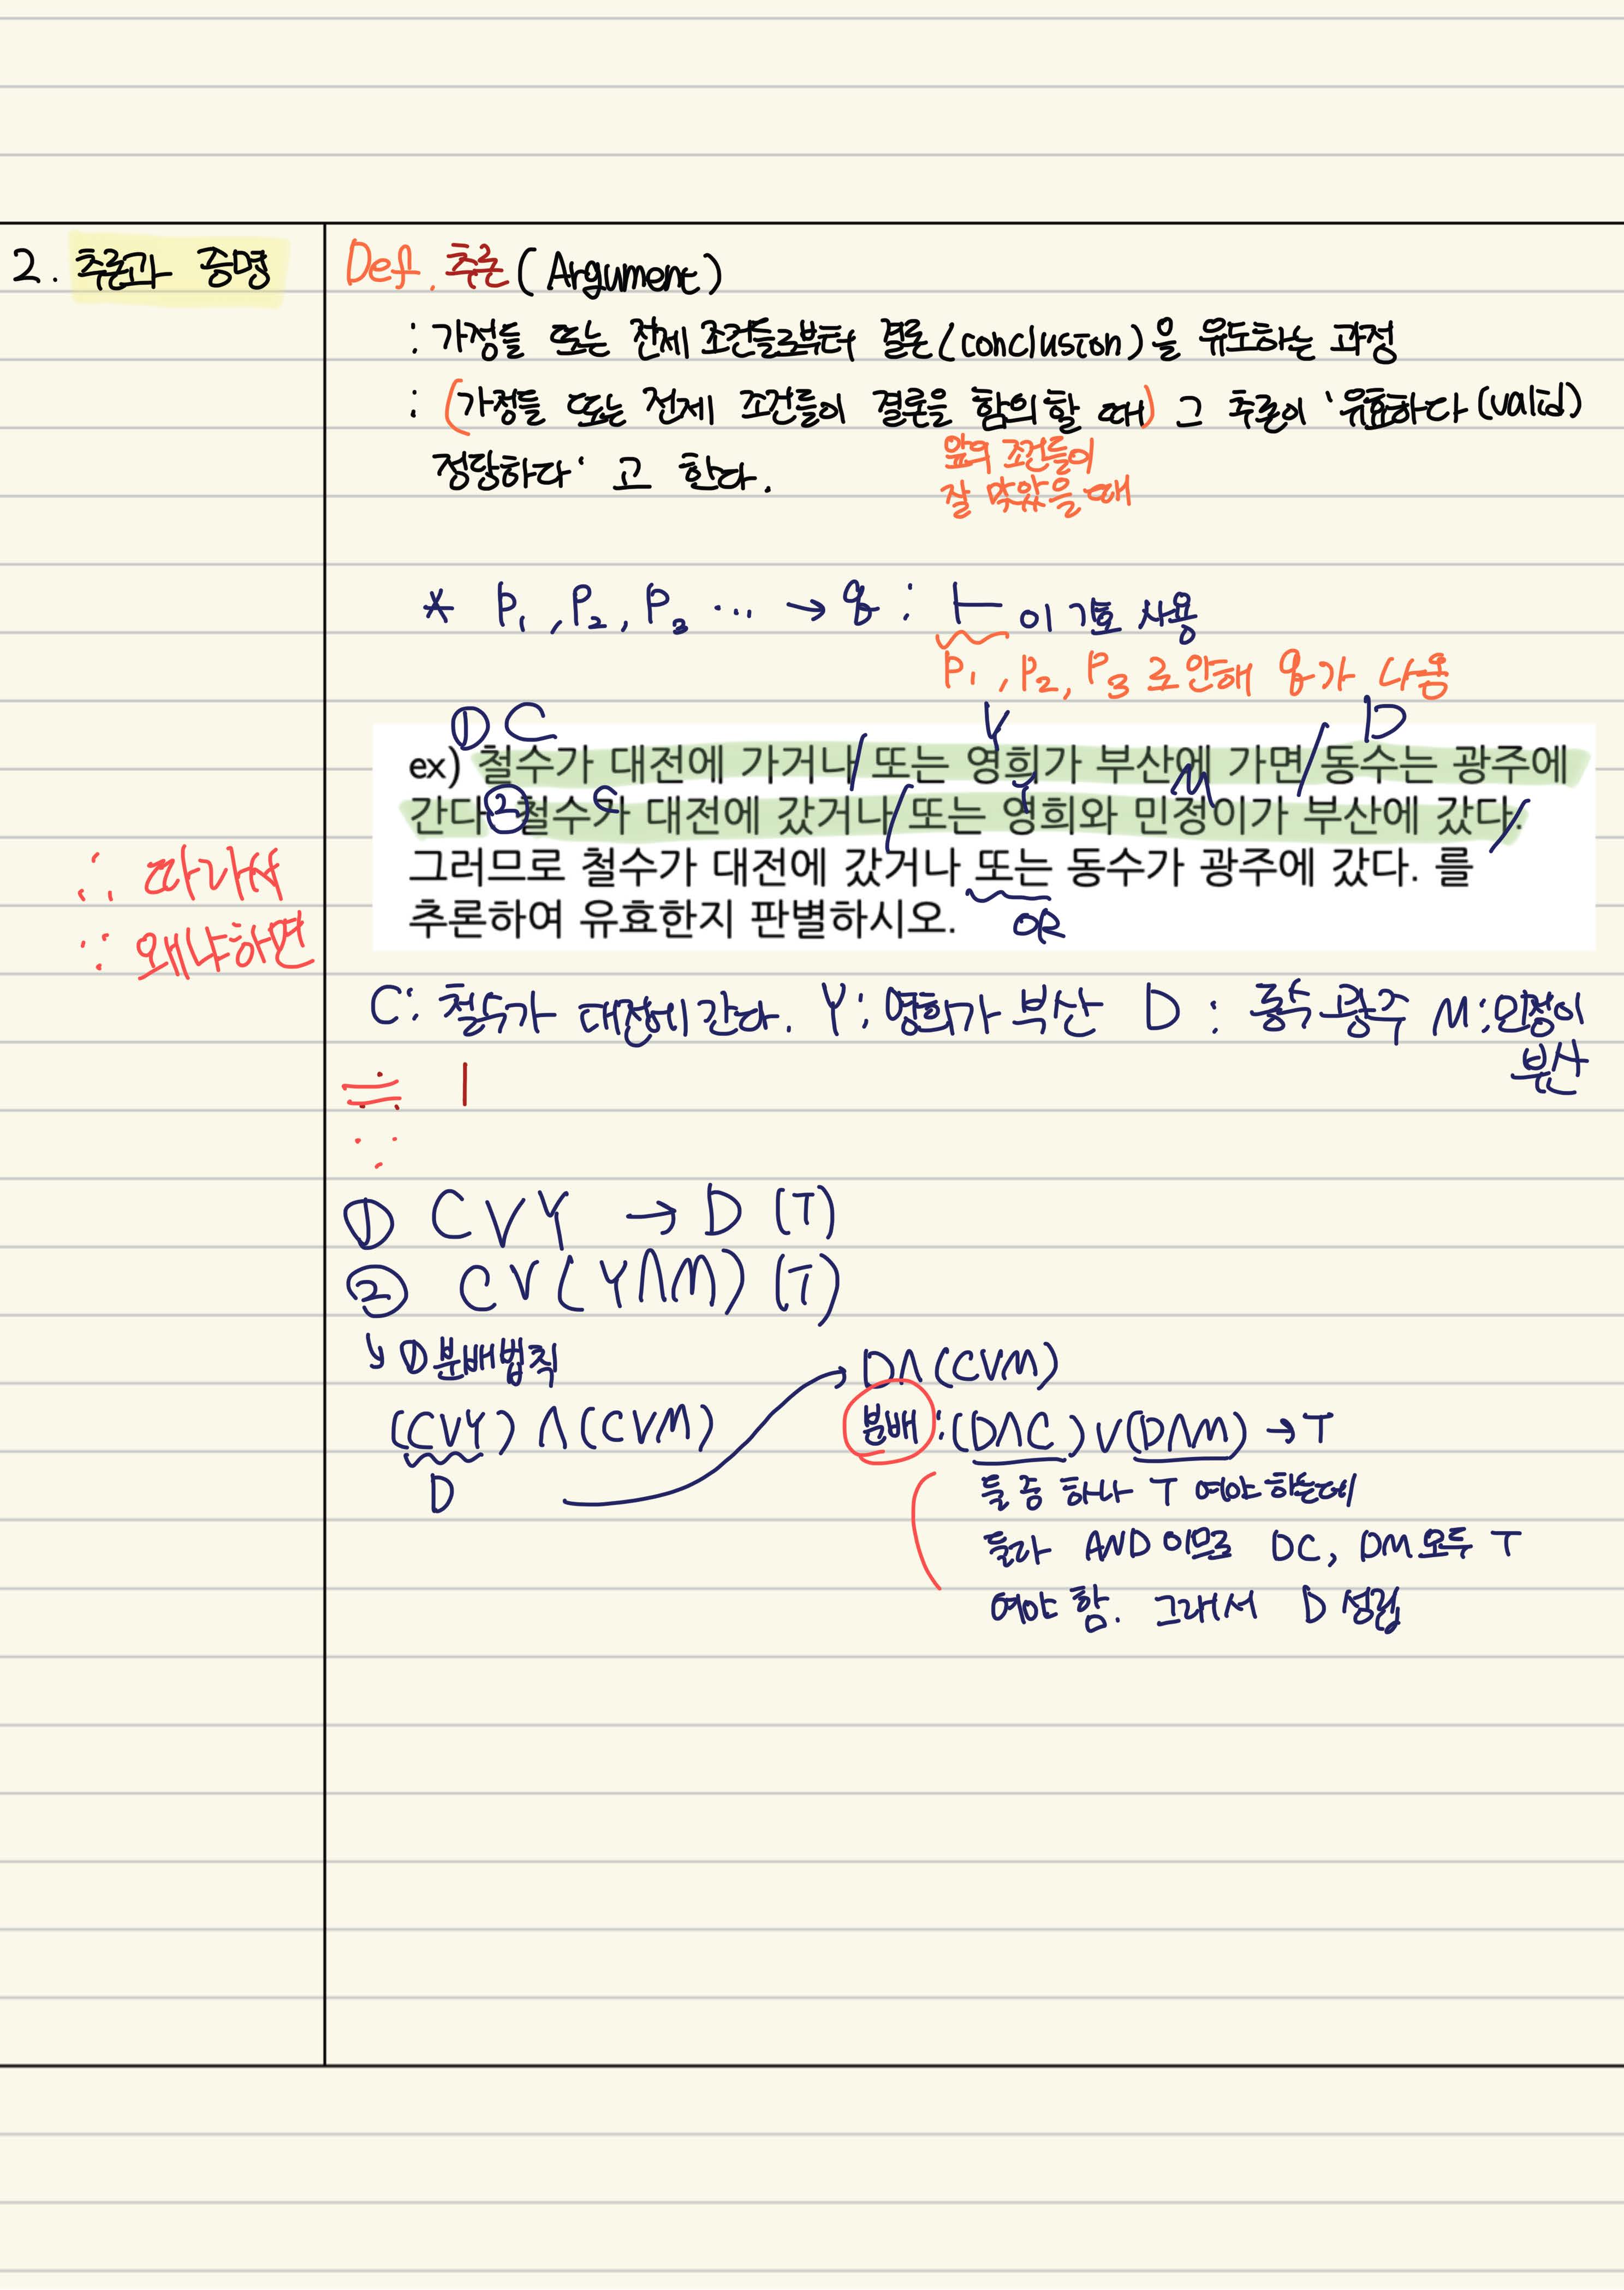 2. 추론과 증명
Def. 추론 (Argument)
: 가정들 또는 전제 조건들로부터 결론(conclusion)을 유도하는 과정
: (가정들 또는 전제 조건들이 결론을 함의할 때) 그 추론이 '유효하다 (valid)
정당하다' 고 한다.
앞의 조건들이
잘 맞았을 때
* P₁, P₂, P₃ ... → q : ⊢ 이 기호 사용
P₁, P₂, P₃ 로 인해 q가 나옴
① C Y D
ex) 철수가 대전에 가거나 / 또는 영희가 부산에 가면 / 동수는 광주에
② C Y M
간다. 철수가 대전에 갔거나 / 또는 영희와 민정이가 부산에 갔다. /
그러므로 철수가 대전에 갔거나 또는 동수가 광주에 갔다. 를
추론하여 유효한지 판별하시오.
OR
∴ 따라서
∵ 왜냐하면
C: 철수가 대전에 간다. Y: 영희가 부산 D : 동수 광주 M: 민정이
부산
① C∨Y → D (T)
② C∨(Y∧M) (T)
↳ ① 분배법칙
(C∨Y) ∧ (C∨M)
D
→ D∧(C∨M)
분배 : (D∧C)∨(D∧M) → T
둘 중 하나 T 여야 하는데
둘다 AND 이므로 DC, DM 모두 T
여야 함. 그래서 D 성립